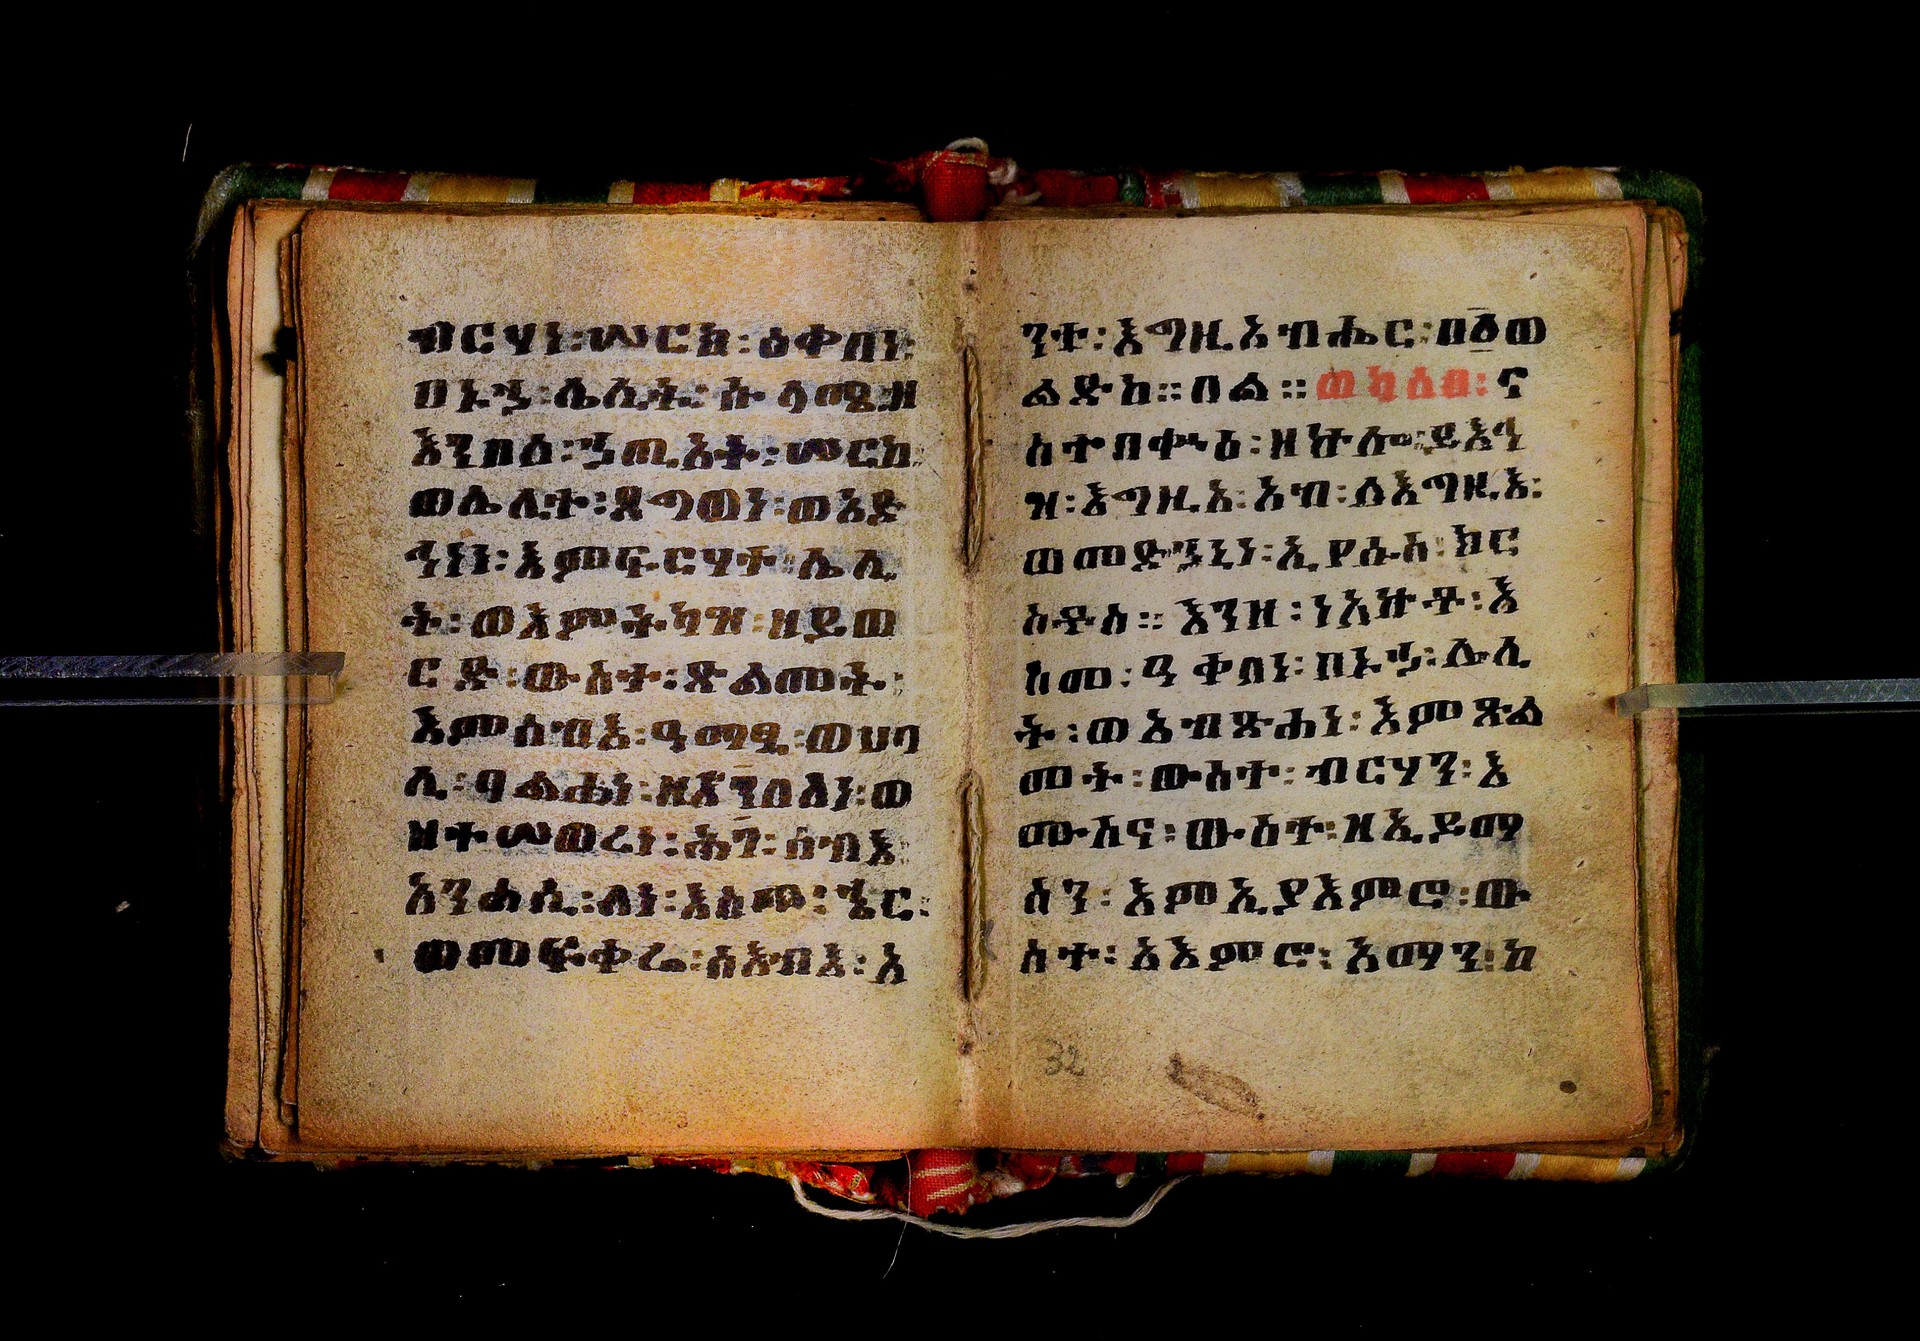 ብርሃነ፡ሠርክ፡ዕቀበነ፡
በኁኝ፡ሌሊት፡
እንበለ፡ኃጢአት፡ሠርከ፡
ወሌሊተ፡ጸግወነ፡ወአድ
ኅነነ፡እምፍርሃተ፡ሌሊ
ት፡ወእምትካዝ፡ዘይወ
ርድ፡ውስተ፡ጽልመት፡
እምሰብእ፡ዓማፂ፡ወሀባ
ሊ፡
ዝተመወረነ፡ሕገ፡ሰብእ፡
አንሐሲ፡ለነ፡እስመ፡ኄር፡
ወመፍቀሬ፡ሰእብእ፡አ
ንተ፡እግዚአብሔር፡በ፩ወ
ልድከ።በል።ወካዕበ፡ና
ስተበቀኍዕ፡ዘኵሎ፡ይእኅ
ዝ፡እግዚአ፡አብ፡ለእግዚእ፡
ወመድኃኒነ፡ኢየሱስ፡ክር
ስቶስ።እንዘ፡ነአኵት፡እ
ስመ፡ዓቀበነ፡በኁኃ፡ሌሊ
ት፡ወአብጽሐነ፡እምጽል
መት፡ውስተ፡ብርሃን፡እ
ሙስና፡ውስተ፡ዘኢይማ
ስን፡እምኢያእምሮ፡ው
ስተ፡አእምሮ፡እማን፡ከ
32